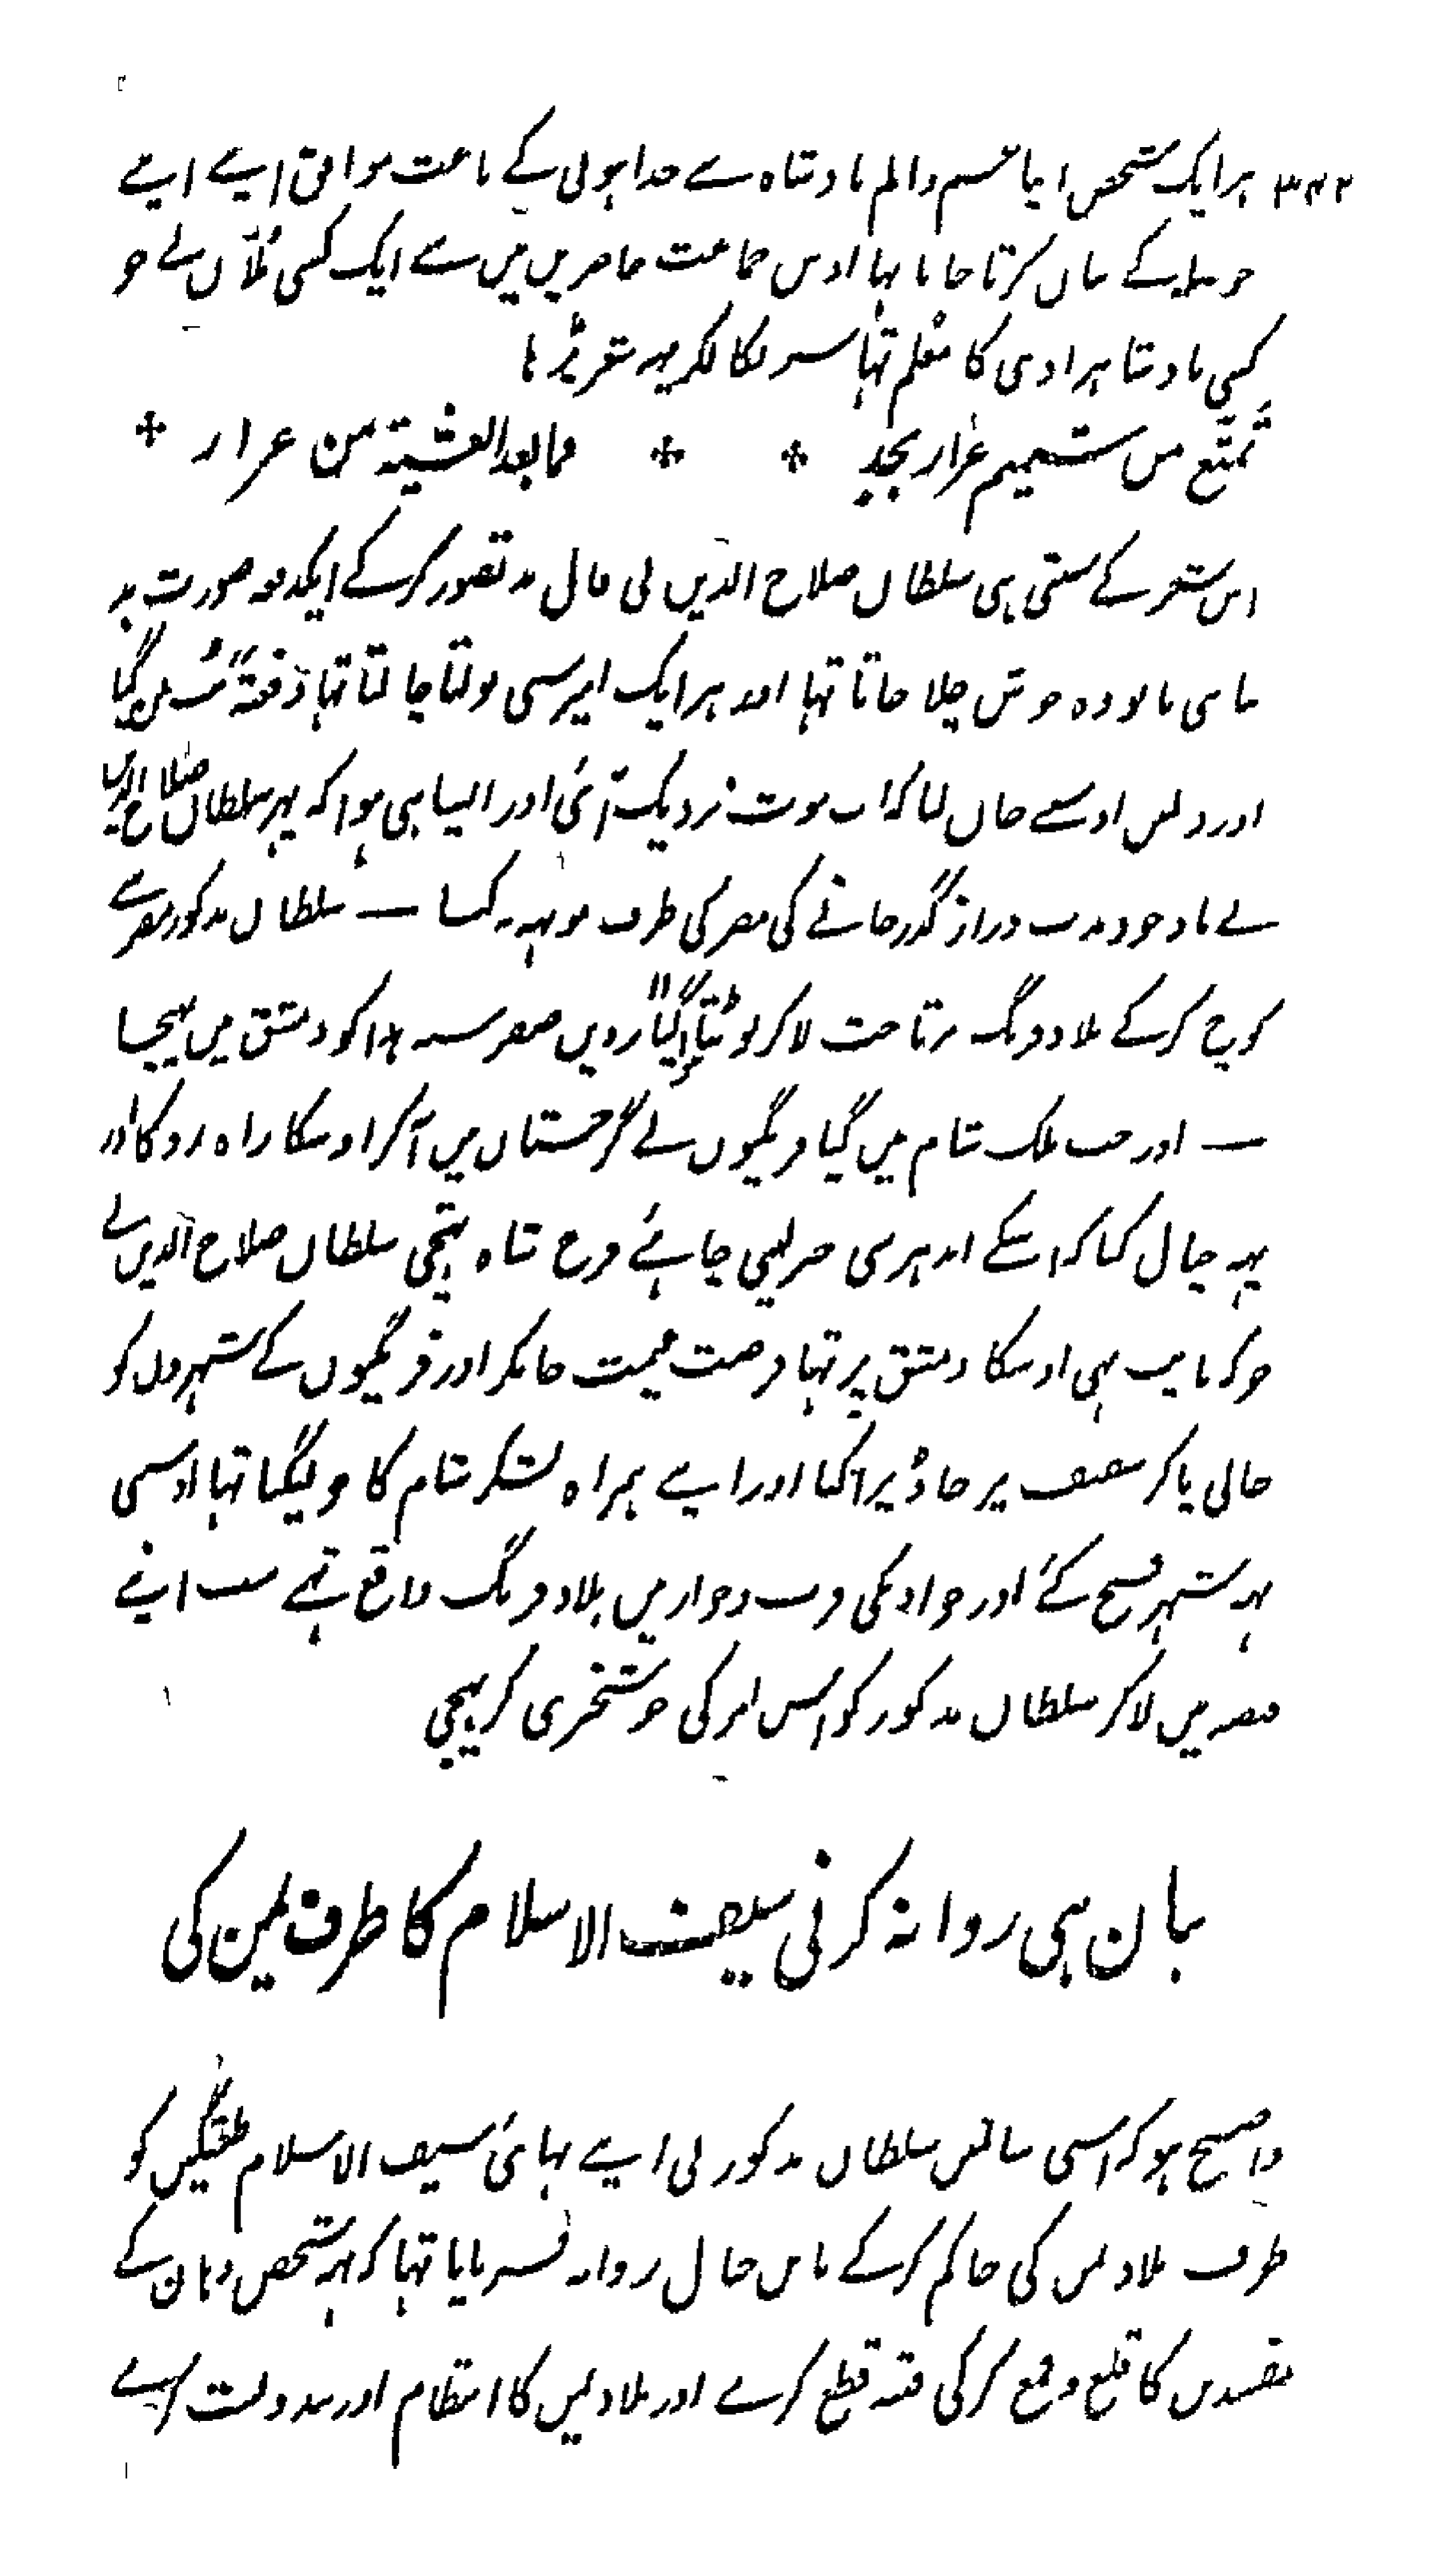 ۳۴۲ ہر ایک شخص اپنا غم و الم بادشاہ سے جدا ہونی کے باعث موافق اپنے اپنے
حوصلہ کے بیان کرتا جاتا تہا اوس جماعت حاضرین میں سے ایک کسی مُلّاں نے جو
کسی بادشاہزادی کا معلم تہا سر نکالکر یہہ شعر پڑہا
تَمتّع من شمیم عَرار نجدٍ ✣ ✣ فما بعد العشیة من عرار ✣
اس شعر کے سنتی ہی سلطان صلاح الدین نی فال بد تصور کرکے ایکدفعہ صورت بد
یا وہ خوش چلا جاتا تہا اور ہر ایک امیر سی بولتا چالتا تہا دفعةً سُن گیا
اور دلمیں اوسنے جان لیا کہ اب موت نزدیک آئی اور ایسا ہی ہوا کہ پہر سلطان صلاح الدین
نے باوجود مدت دراز گذر جانے کی مصر کی طرف مونہہ نہ کیا — سلطان مذکور مصر سے
کوچ کرکے بلاد فرنگ پر تاخت لاکر لوٹتا ہوا گیارہویں صفر سنہ کو دمشق میں پہنچا
— اور جب ملک شام میں گیا فرنگیوں نے گرجستان میں آکر اوسکا راہ روکا اور
یہہ خیال کیا کہ اسکے اندہری خبر لیجی جائے فرخ شاہ بہتیجی سلطان صلاح الدین نے
جو کہ نایب بہی اوسکا دمشق پر تہا فرصت غنیمت جانکر اور فرنگیوں کے شہروں کو
خالی پاکر شقیف پر جا ڈیرا کیا اور اپنے ہمراہ لشکر شام کا جو لیگیا تہا اوسی
یہہ شہر فتح کئے اور جو اوسکی قرب و جوار میں بلاد فرنگ واقع تہے سب اپنے
قبضہ میں لاکر سلطان مذکور کو اس امر کی خوشخبری کر بہیجی
بیان ہی روانہ کرنی سیف الاسلام کا طرف یمن کی
واضح ہو کہ اسی سال میں سلطان مذکور نی اپنے بہائی سیف الاسلام طغتگین کو
طرف بلاد یمن کی حاکم کرکے باین خیال روانہ فرمایا تہا کہ یہہ شخص وہان کے
مفسدین کا قلع و قمع کر کی فتنہ قطع کرے اور بلاد یمن کا انتظام اور بندوبست کرے